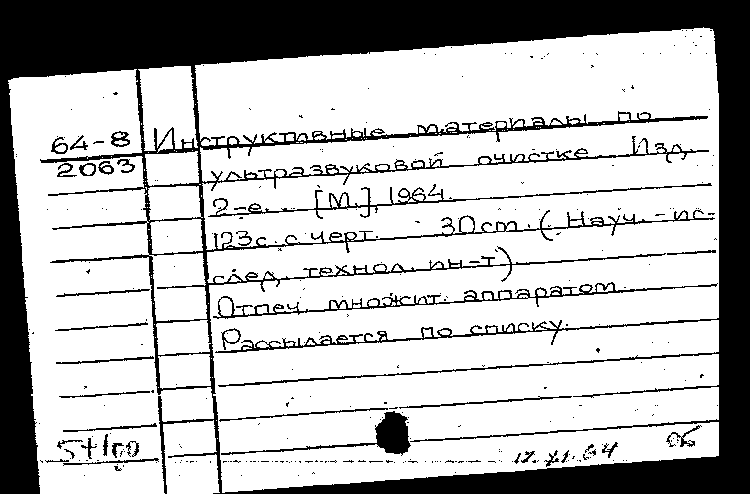 64-8 Инструктивные материалы по
2063 ультразвуковой очистке. Изд.
2-е. [М.], 1964.
123с. с черт. 30см. (Науч.-ис-
след. технол. ин-т)
Отпеч. множит. аппаратом.
Рассылается по списку.
17.XI.64 ОБ